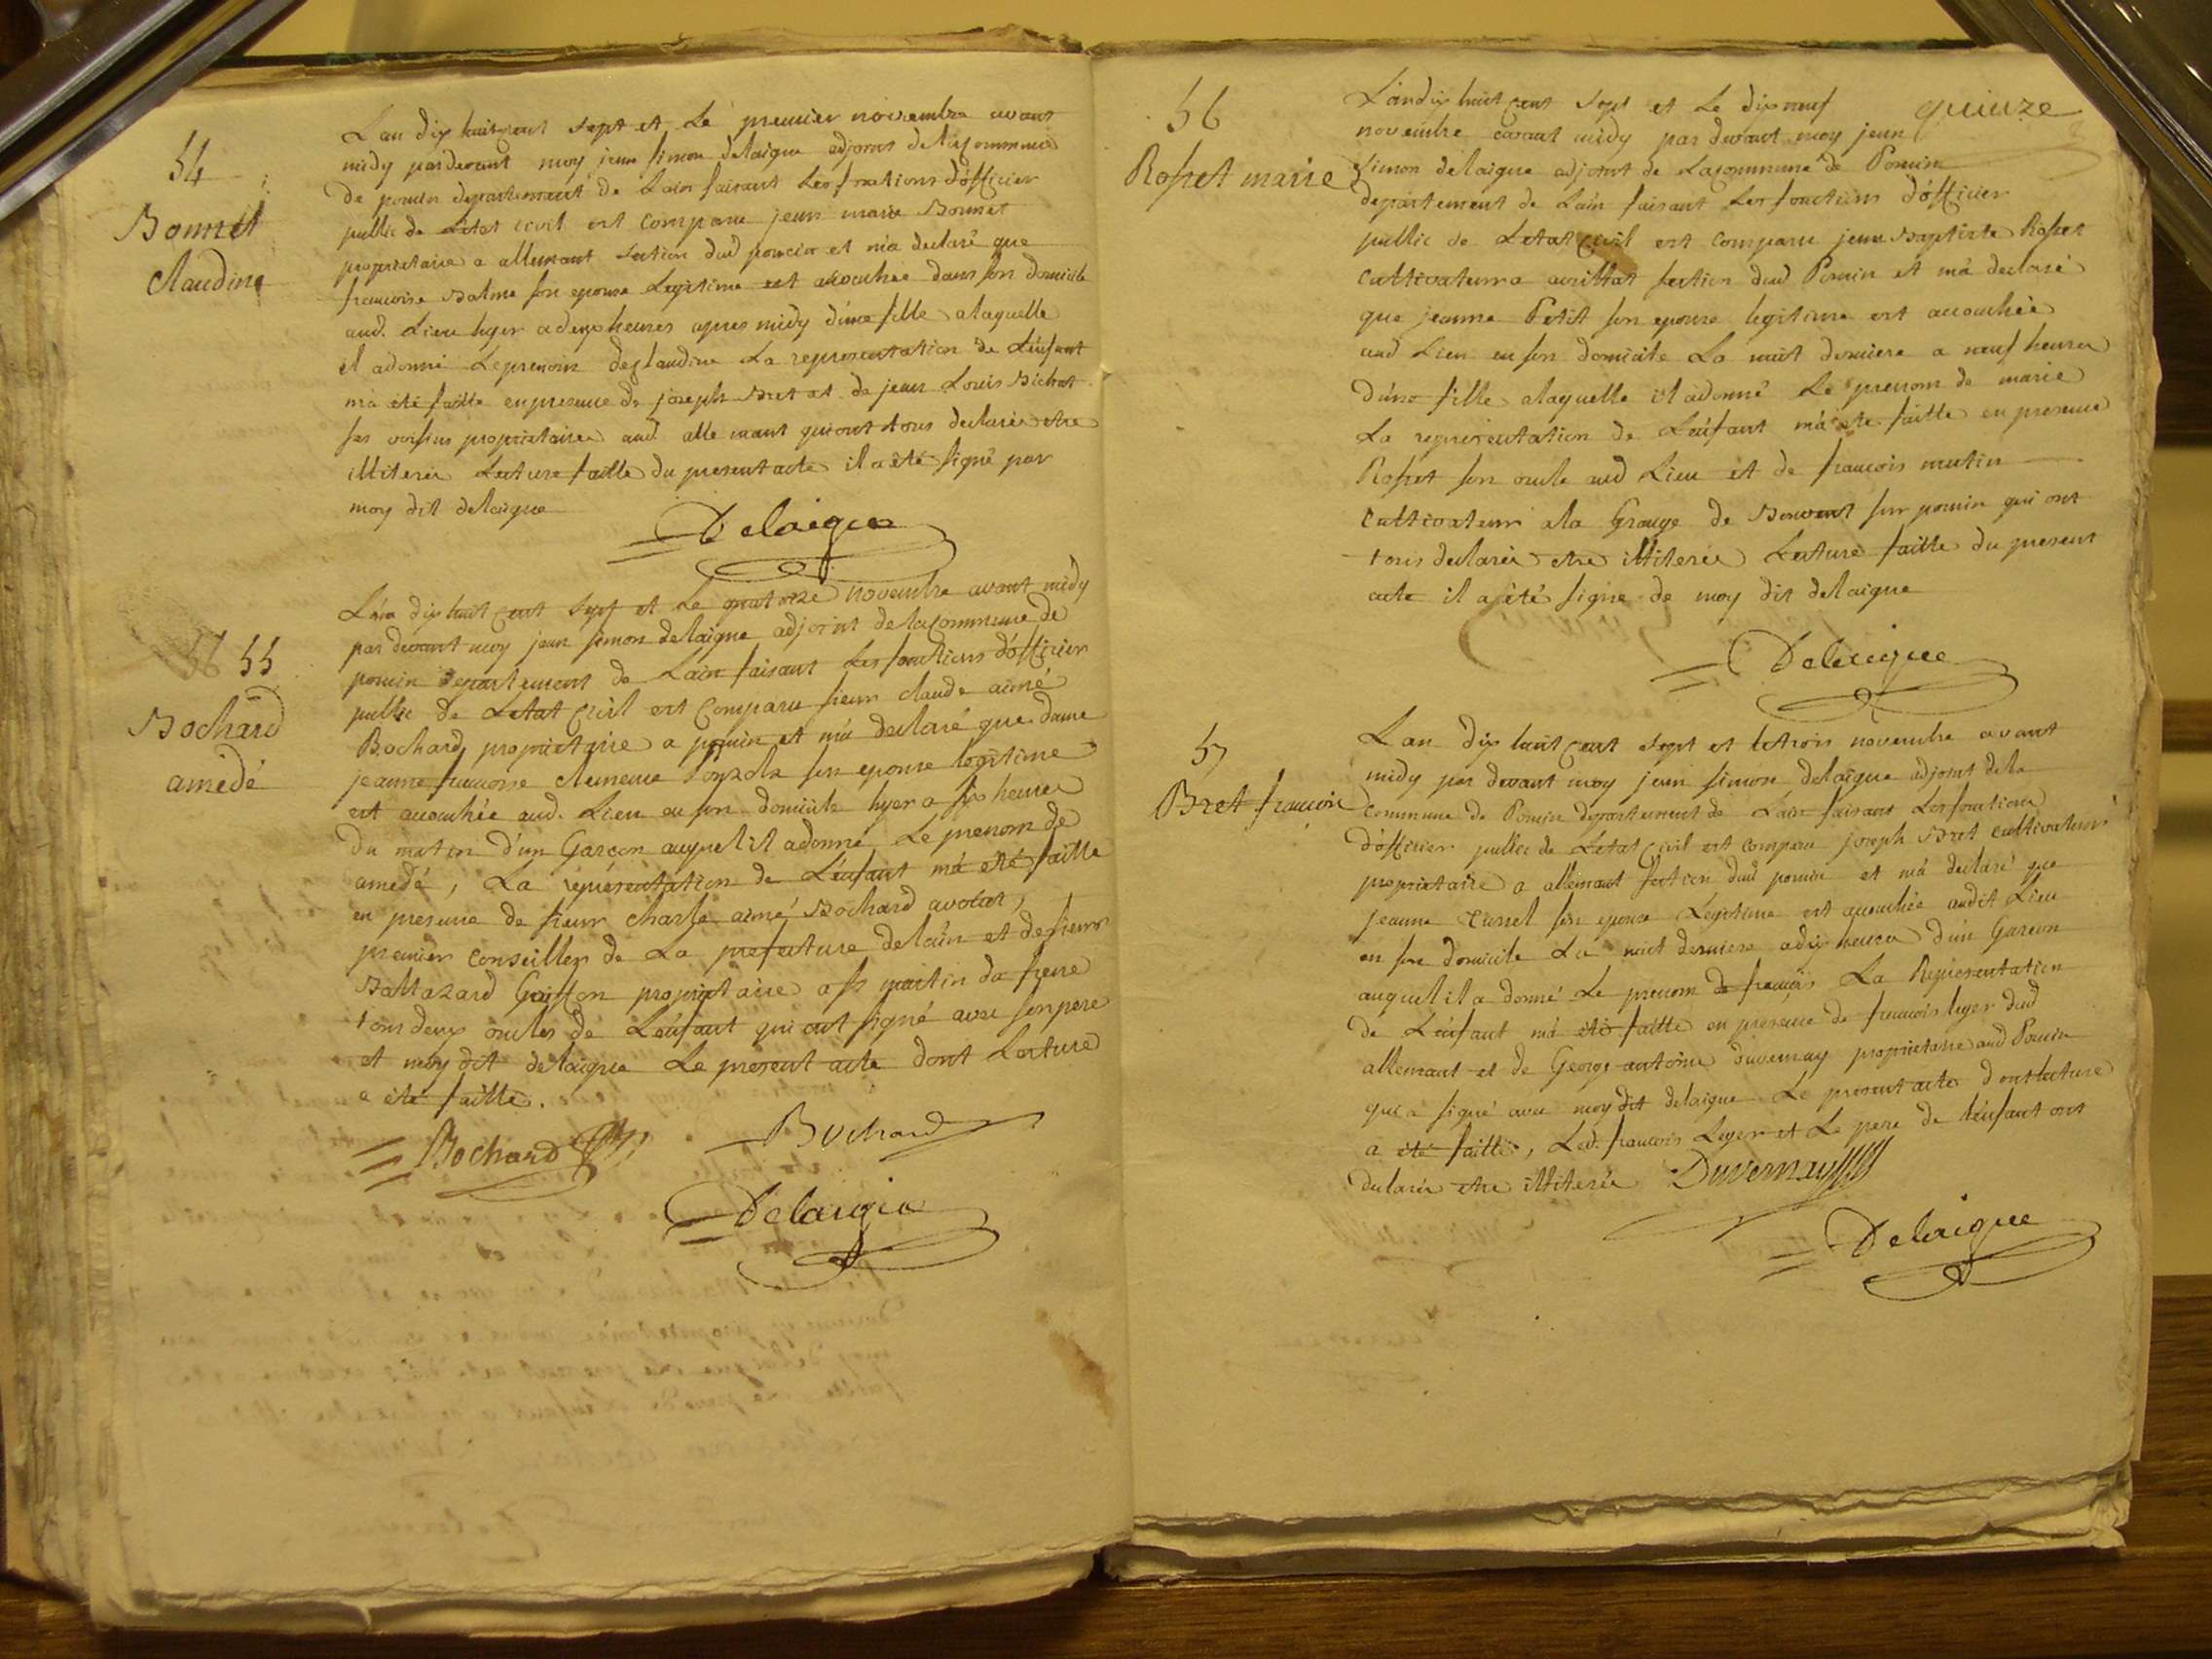 54
Bonnet
claudine
L'an dix huit cent sept et le premier novembre avant
midy pardevant moy jean simon delaigue adjoint de la commune
de poncin departement de Lain faisant les fonctions d'officier
public de Letat civil est comparu jean marie Bonnet
proprietaire a allemant section dud poncin et m'a declaré que
francoise Balme son epouse Legitime est accouchée dans son domicile
aud. Lieu hyer a deux heures apres midy d'une fille a laquelle
il a donné Le prenom de glaudine La representation de L'enfant
m'a eté faitte en presence de joseph Bret et de jean Louis Bichat
ses voisins proprietaires aud. allemant qui ont tous declarés etre
illiterés Lecture faitte du present acte il a été signé par
moy dit delaigue
Delaigue
55
Bochard
amédé
L'an dix huit cent sept et le quatorze novembre avant midy
par devant moy jean simon delaigue adjoint de la commune de
poncin departement de Lain faisant les fonctions d'officier
public de Letat civil est comparu sieur claude aimé
Bochard proprietaire a poncin et m'a declaré que dame
jeanne francoise clemence son epouse legitime
est accouchée aud. Lieu en son domicile hyer a six heures
du matin d'un Garçon auquel il a donné Le prenom de
amedé, La représentation de L'enfant m'a eté faitte
en presence de sieur charle aimé Bochard avocat,
premier conseiller de La prefecture de lain et de sieur
Baltazard Goiffon proprietaire a st martin du frene
tous deux oncles de L'enfant qui ont signé avec son pere
et moy dit delaigue Le present acte dont Lecture
a eté faitte.
Bochard
Bochard
Delaigue
quinze
56
Rosset marie
L'an dix huit cent sept et Le dix neuf
novembre avant midy par devant moy jean
simon delaigue adjoint de La commune de Poncin
departement de Lain faisant Les fonctions d'officier
public de Letat civil est comparu jean Baptiste Rosset
cultivateur a avrillat section dud Poncin et m'a declaré
que jeanne Petit son epouse legitime est accouchée
aud Lieu en son domicile La nuit derniere a neuf heures
d'une fille a laquelle il a donné Le prenom de marie
La representation de L'enfant m'a ete faitte en presence
Rosset son oncle aud Lieu et de francois mutin
cultivateur a la Grange de Bouvent sur poncin qui ont
tous declarés etre illiterés Lecture faitte du present
acte il a été signé de moy dit delaigue
Delaigue
57
Bret francois
L'an dix huit cent sept et le trois novembre avant
midy par devant moy jean simon delaigue adjoint de la
commune de Poncin departement de Lain faisant Les fonctions
d'officier public de Letat civil est comparu joseph Bret cultivateur
proprietaire a allemant section dud poncin et m'a declaré que
jeanne son epouse Legitime est accouchée audit Lieu
en son domicile La nuit derniere a dix heures d'un Garcon
auquel il a donné Le prenom de francois La Representation
de L'enfant m'a eté faitte en presence de francois leger dud
allemant et de George antoine duvernay proprietaire aud Poncin
qui a signé avec moy dit delaigue Le present acte dont lecture
a eté faitte, Led. francois Leger et Le pere de l'enfant ont
declarés etre illiterés Duvernay
Delaigue